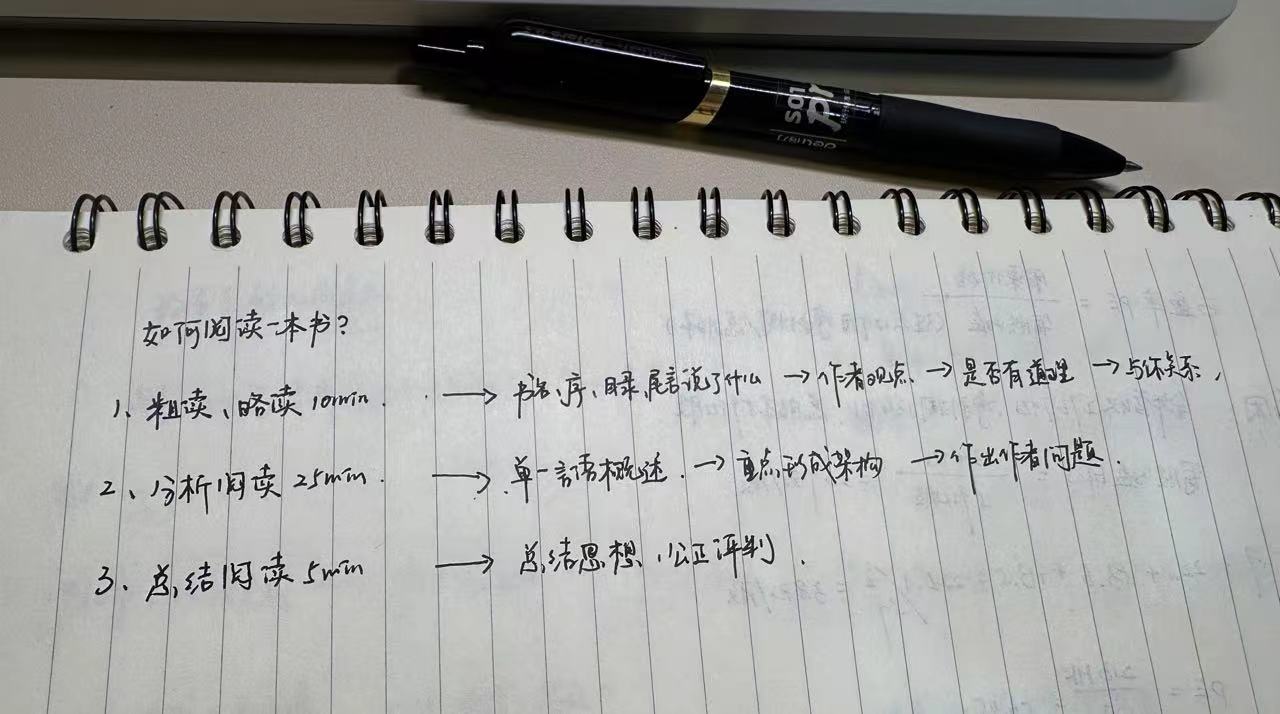 deli
如何阅读一本书?
1、粗读、略读 10min. → 书名、序、目录、尾言说了什么 → 作者观点 → 是否有道理 → 与你关系,
2、分析阅读 25min. → 单一言语概述. → 重点形成架构 → 作出作者问题.
3、总结阅读 5min → 总结思想, 公正评判.